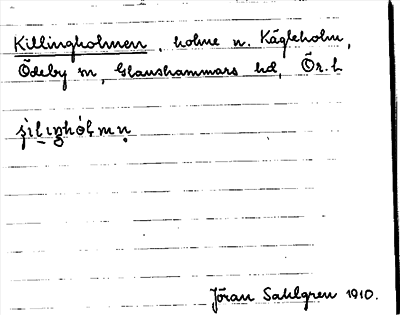 Killingholmen, holme n. Kägleholm,
Ödeby sn, Glanshammars hd, Ör. l.
Jöran Sahlgren 1910.